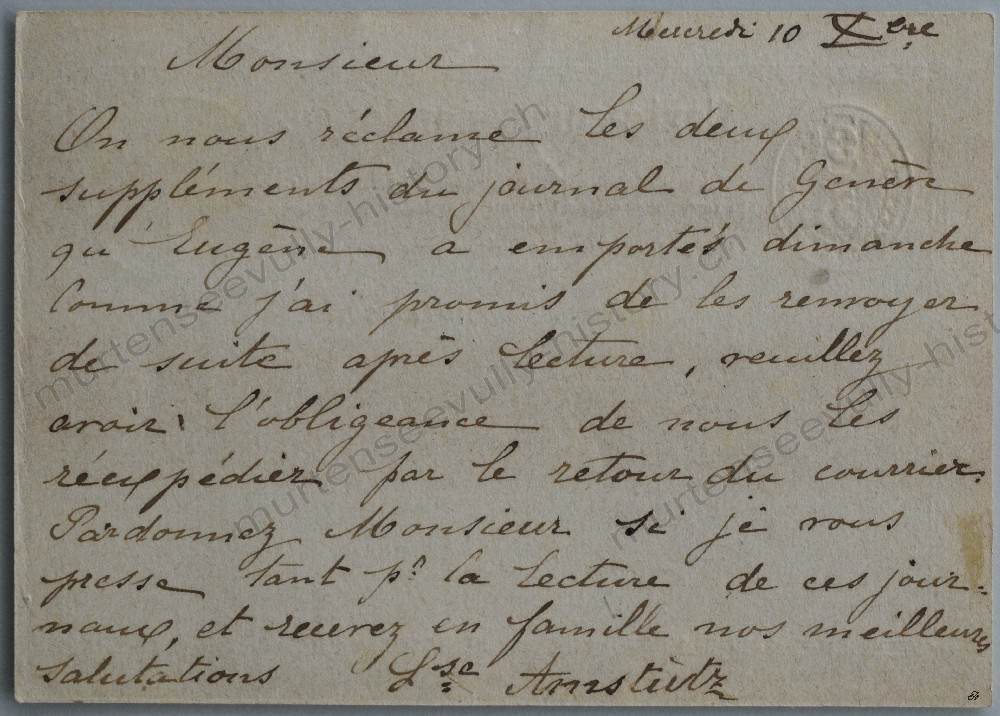 Mercredi 10 Xbre
Monsieur
On nous réclame les deux
suppléments du journal de Genève
qu'Eugène a emportés dimanche
Comme j'ai promis de les renvoyer
de suite après lecture, veuillez
avoir l'obligeance de nous les
réexpédier par le retour du courrier.
Pardonnez Monsieur si je vous
presse tant pr la lecture de ces jour-
naux, et recevez en famille nos meilleures
salutations Lse Amstutz
murtenseevully-history.ch
murtenseevully-history.ch
murtenseevully-history.ch